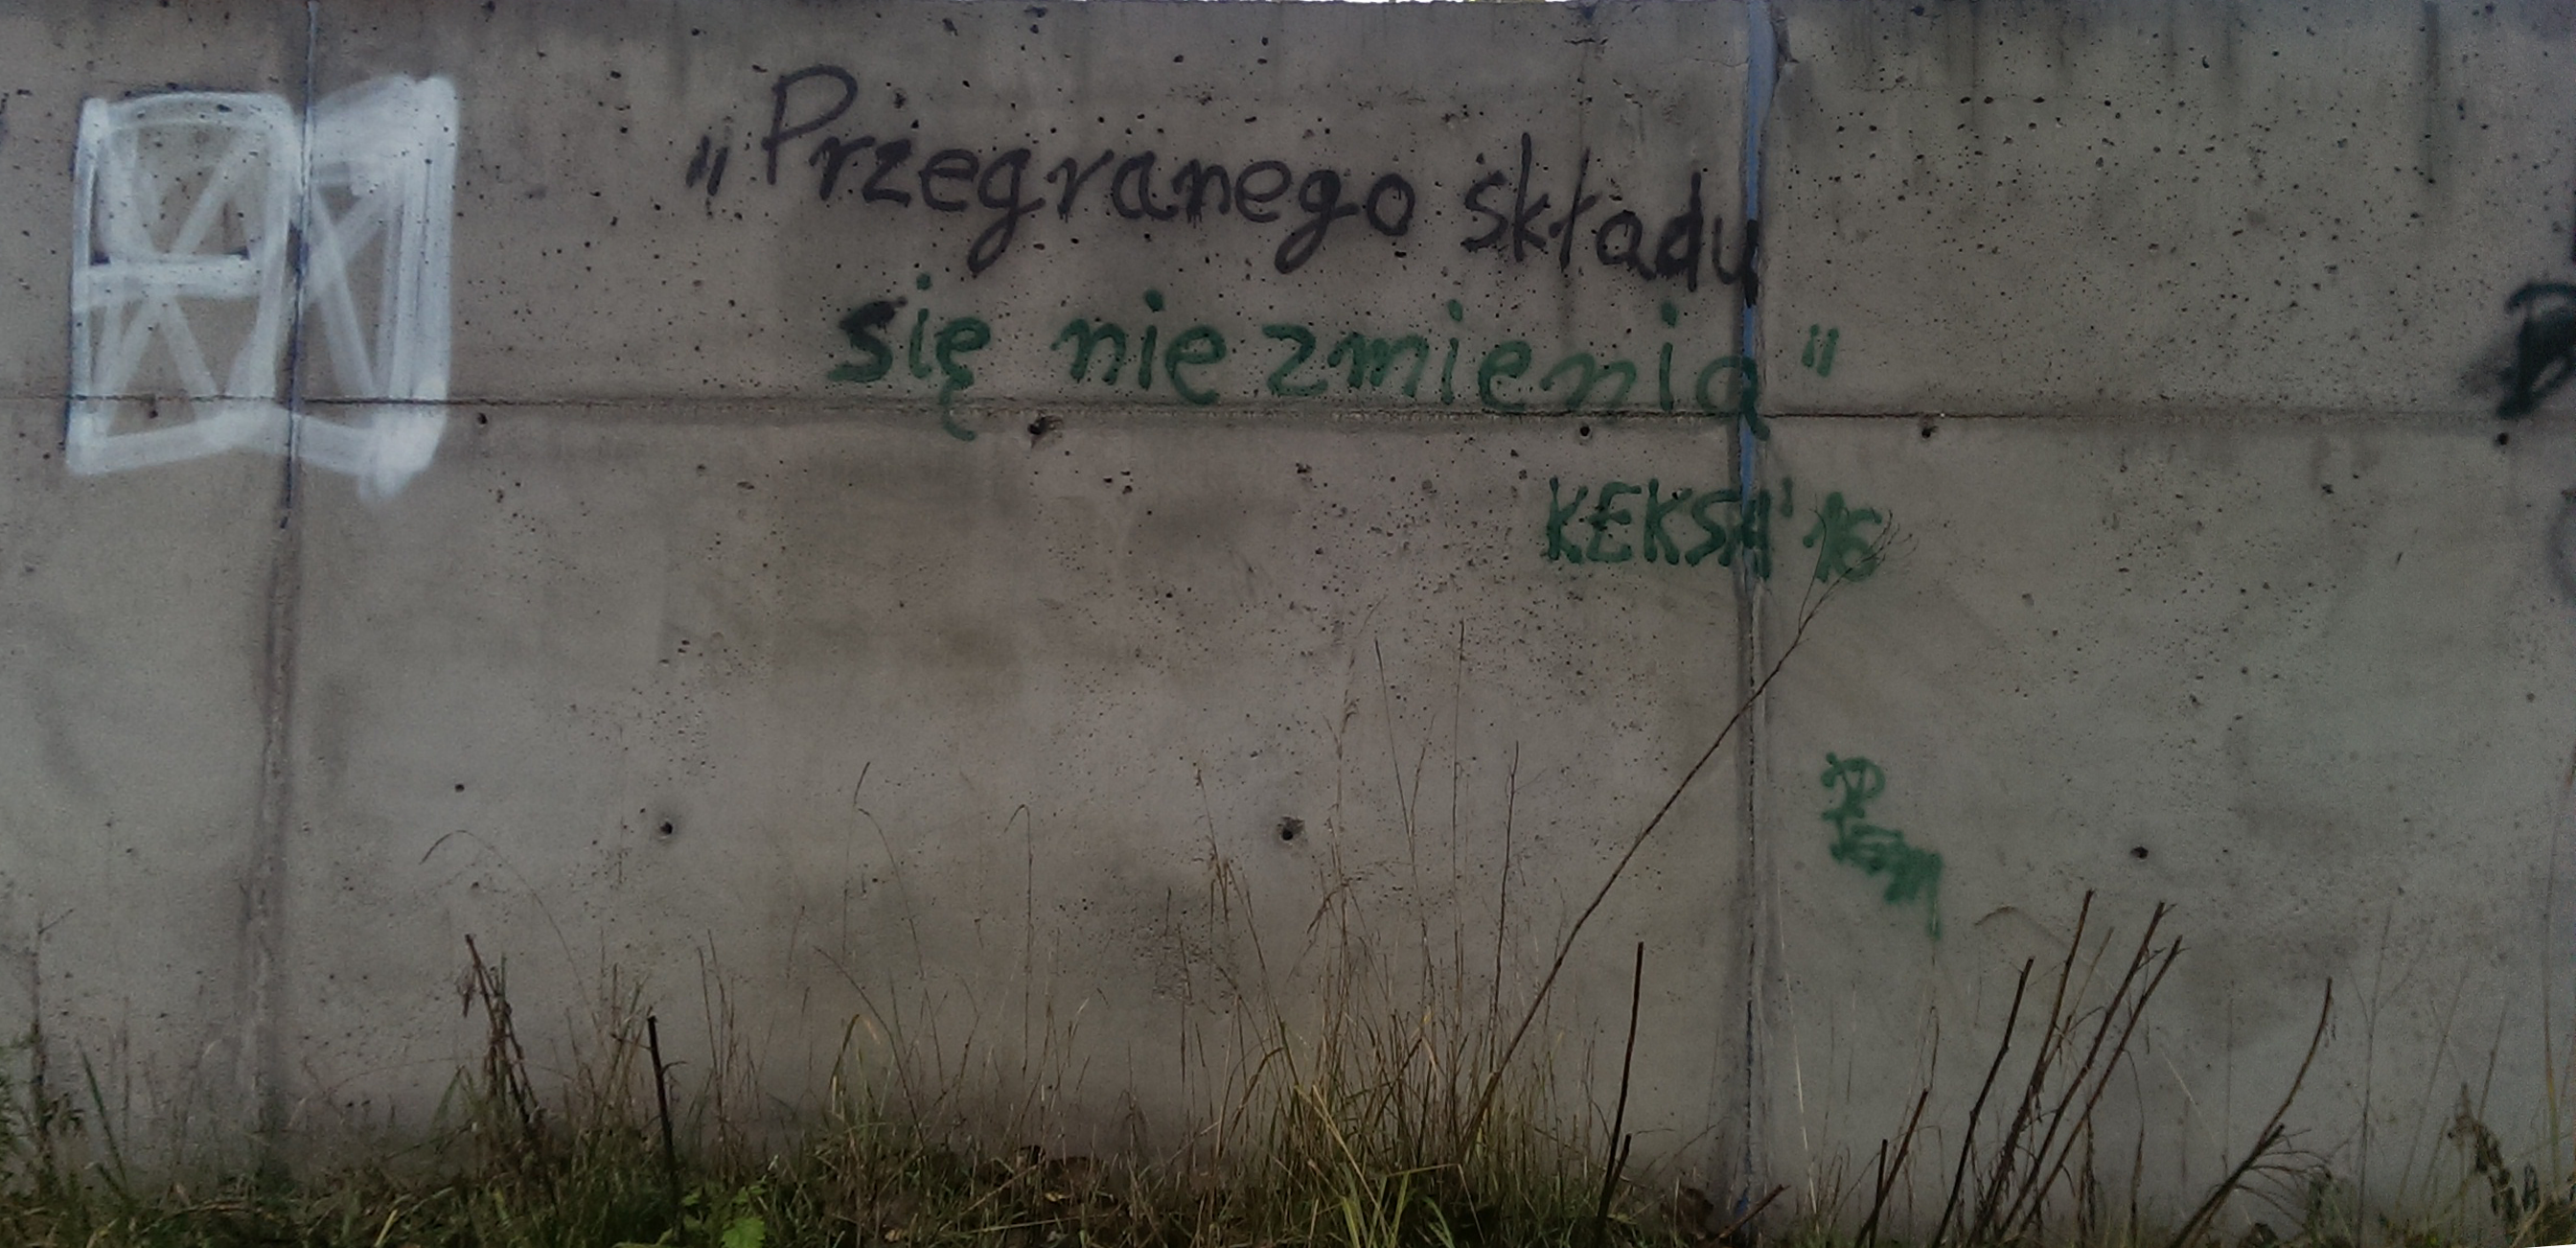 „Przegranego składu
się nie zmienia"
KEKSA' 16